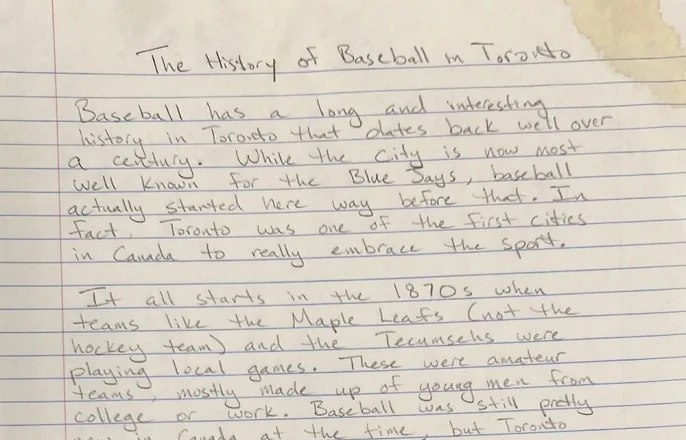 The History of Baseball in Toronto
Baseball has a long and interesting
history in Toronto that dates back well over
a century. While the city is now most
well known for the Blue Jays, baseball
actually started here way before that. In
fact, Toronto was one of the first cities
in Canada to really embrace the sport.
It all starts in the 1870s when
teams like the Maple Leafs (not the
hockey team) and the Tecumsehs were
playing local games. These were amateur
teams, mostly made up of young men from
college or work. Baseball was still pretty
in Canada at the time, but Toronto